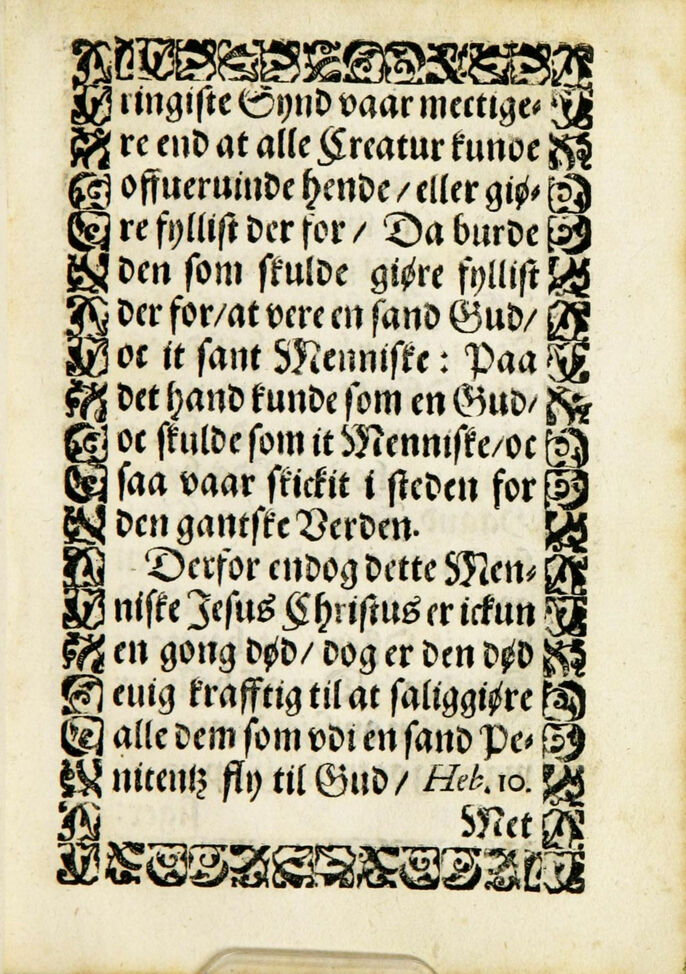 ringiste Synd vaar mectige⸗
re end at alle Creatur kunde
offueruinde hende / eller giø⸗
re fyllist der for / Da burde
den som skulde giøre fyllist
der for/at vere en sand Gud/
oc it sant Menniske : Paa
det hand kunde som en Gud/
oc skulde som it Menniske/oc
saa vaar skickit i steden for
den gantske Verden.
Derfor endog dette Men⸗
niske Jesus Christus er ickun
en gong død/ dog er den død
euig krafftig til at saliggiøre
alle dem som vdi en sand Pe⸗
nitentz fly til Gud / Heb. 10.
Met